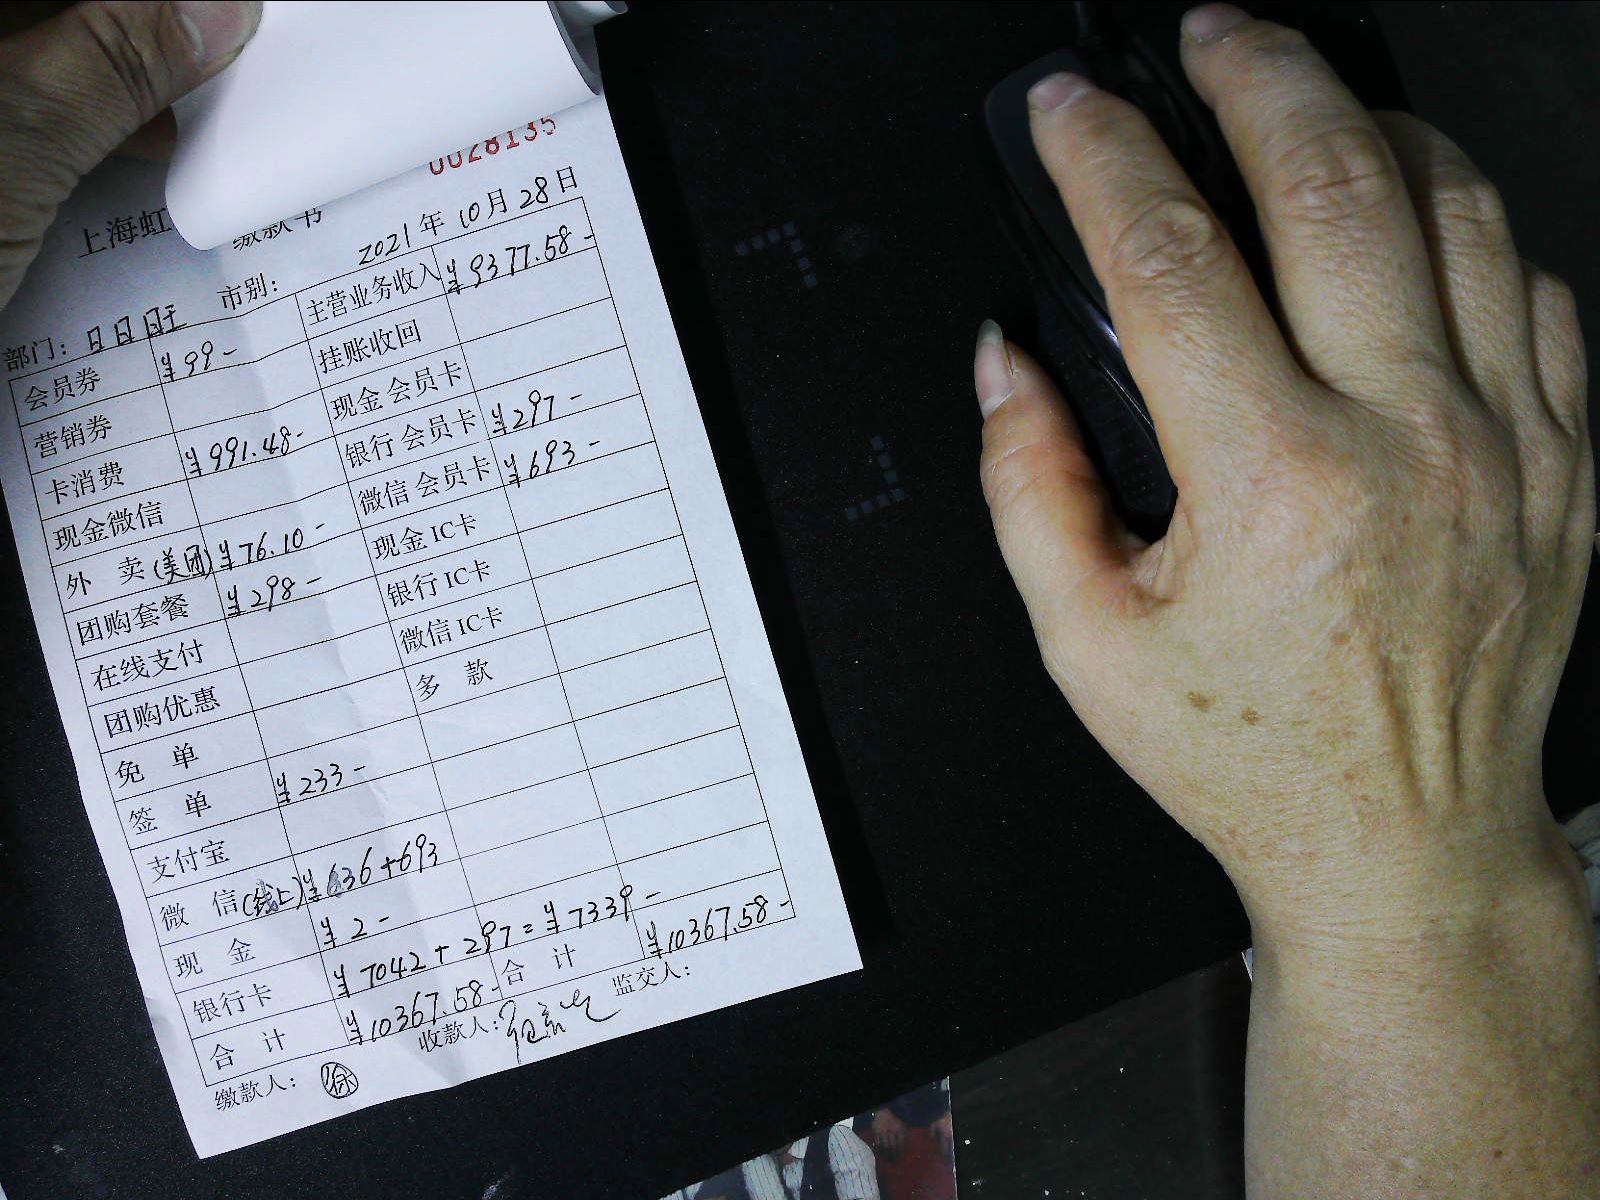 0028135
上海虹 缴款书
2021年 10月 28日
部门: 日日旺 市别:
会员券 ¥99- 主营业务收入 ¥9377.58-
营销券 挂账收回
卡消费 ¥991.48- 现金会员卡
现金微信 银行会员卡 ¥297-
外 卖(美团) ¥76.10- 微信会员卡 ¥693-
团购套餐 ¥298- 现金IC卡
在线支付 银行IC卡
团购优惠 微信IC卡
免 单 多 款
签 单 ¥233-
支付宝
微 信(线上) ¥636+693
现 金 ¥2-
银行卡 ¥7042+297=¥7339-
合 计 ¥10367.58- 合 计 ¥10367.58-
缴款人: 徐 收款人: 监交人: